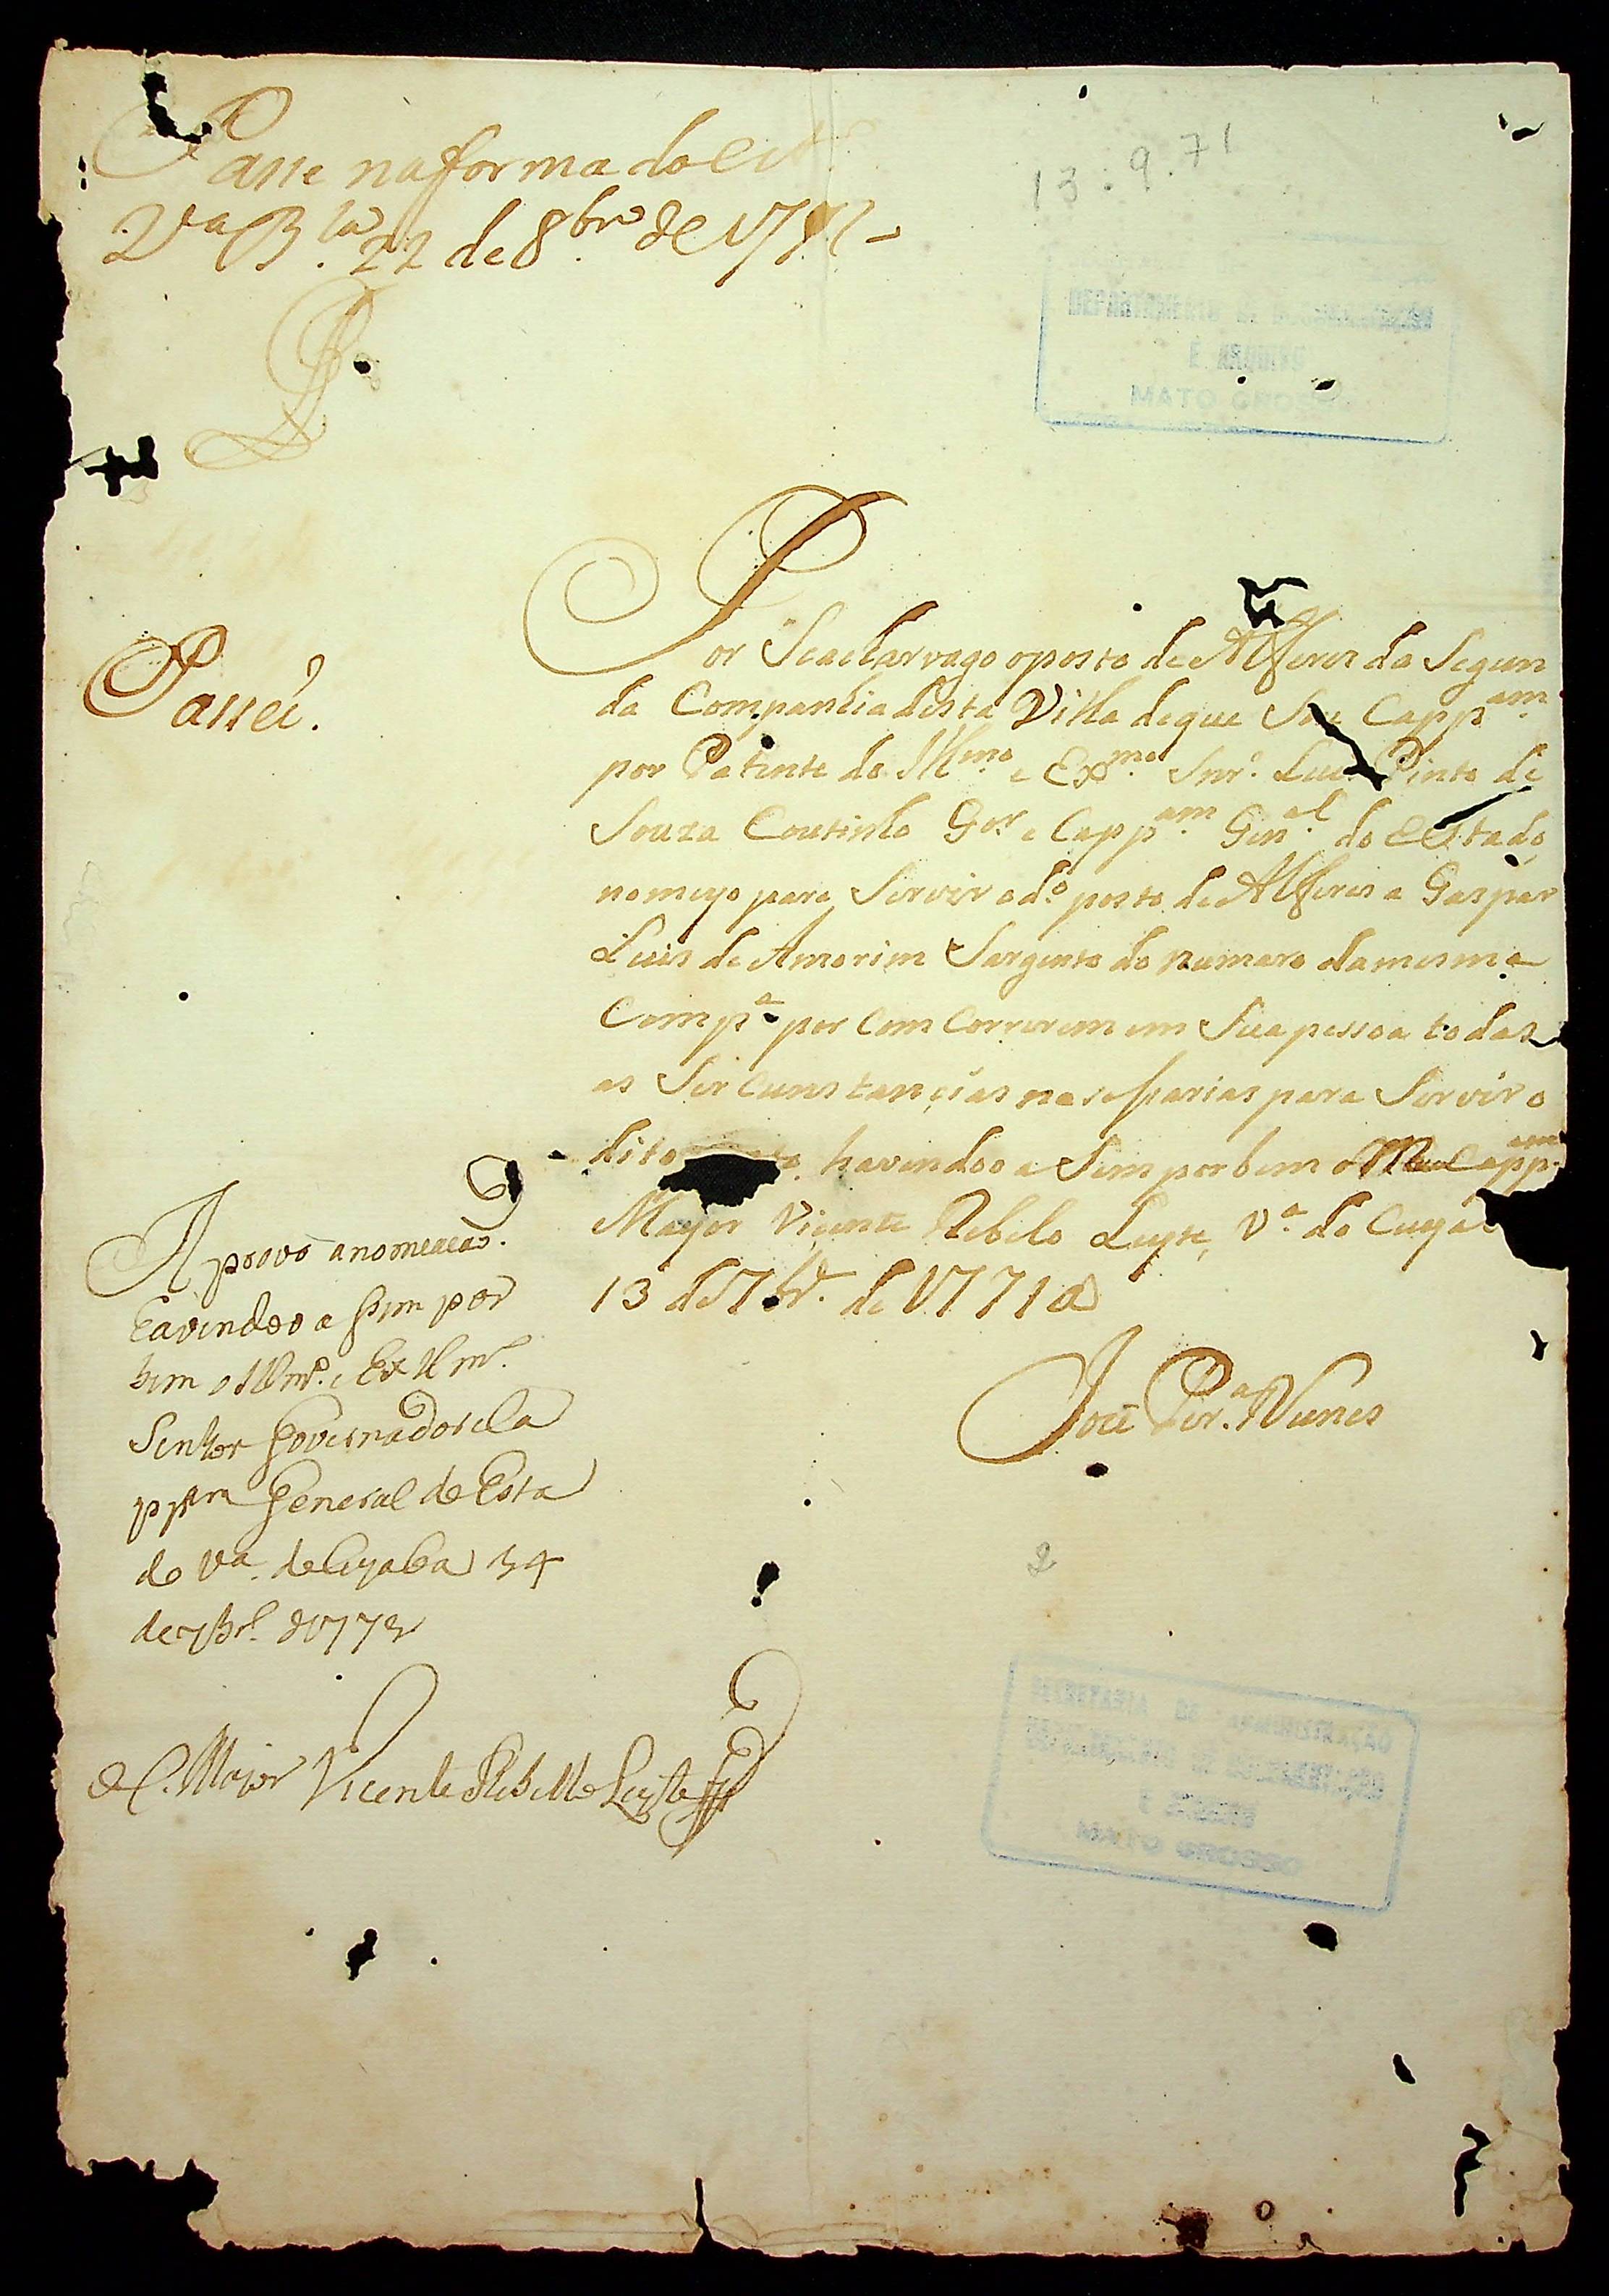 Passe na forma do est.º
V.ª B.ª 22 de 8.bro de 1771
13.9.71
DEPARTAMENTO DE DOCUMENTAÇÃO
E ARQUIVO
MATO GROSSO
Passei.
Por Seachar vago oposto de Alferes da Segun
da Companhia desta Villa deque Sou Capp.am
por Patente do Ill.mo e Ex.mo Snr. Luis Pinto de
Souza Coutinho G.or e Capp.am Gen.al do Estado
nomeyo para Servir o d.º posto de Alferes a Gaspar
Luis de Amorim Sargento do numaro damesma
Comp.ª por Com Correrem em Sua pessoa todas
as Sircunstançias nesesarias para Servir o
dito havendoo a Sim por bem o Capp.am
Mayor Vicente Rebelo Leyte, V.ª do Cuyabá
13 de 7br.º de 1771 a
José Per.ª Nunes
Aprovo anomeacaõ.
Eavendoo a Sim por
bem o Illmº. e Exllmº.
Senhor Governador e Ca
ppam General do Esta
do Vª. do Cuyaba 14
de 7br.º d 1771
O C. Major Vicente Rebello Leyte
2
SECRETARIA DE ADMINISTRAÇÃO
DEPARTAMENTO DE DOCUMENTAÇÃO
E ARQUIVO
MATO GROSSO